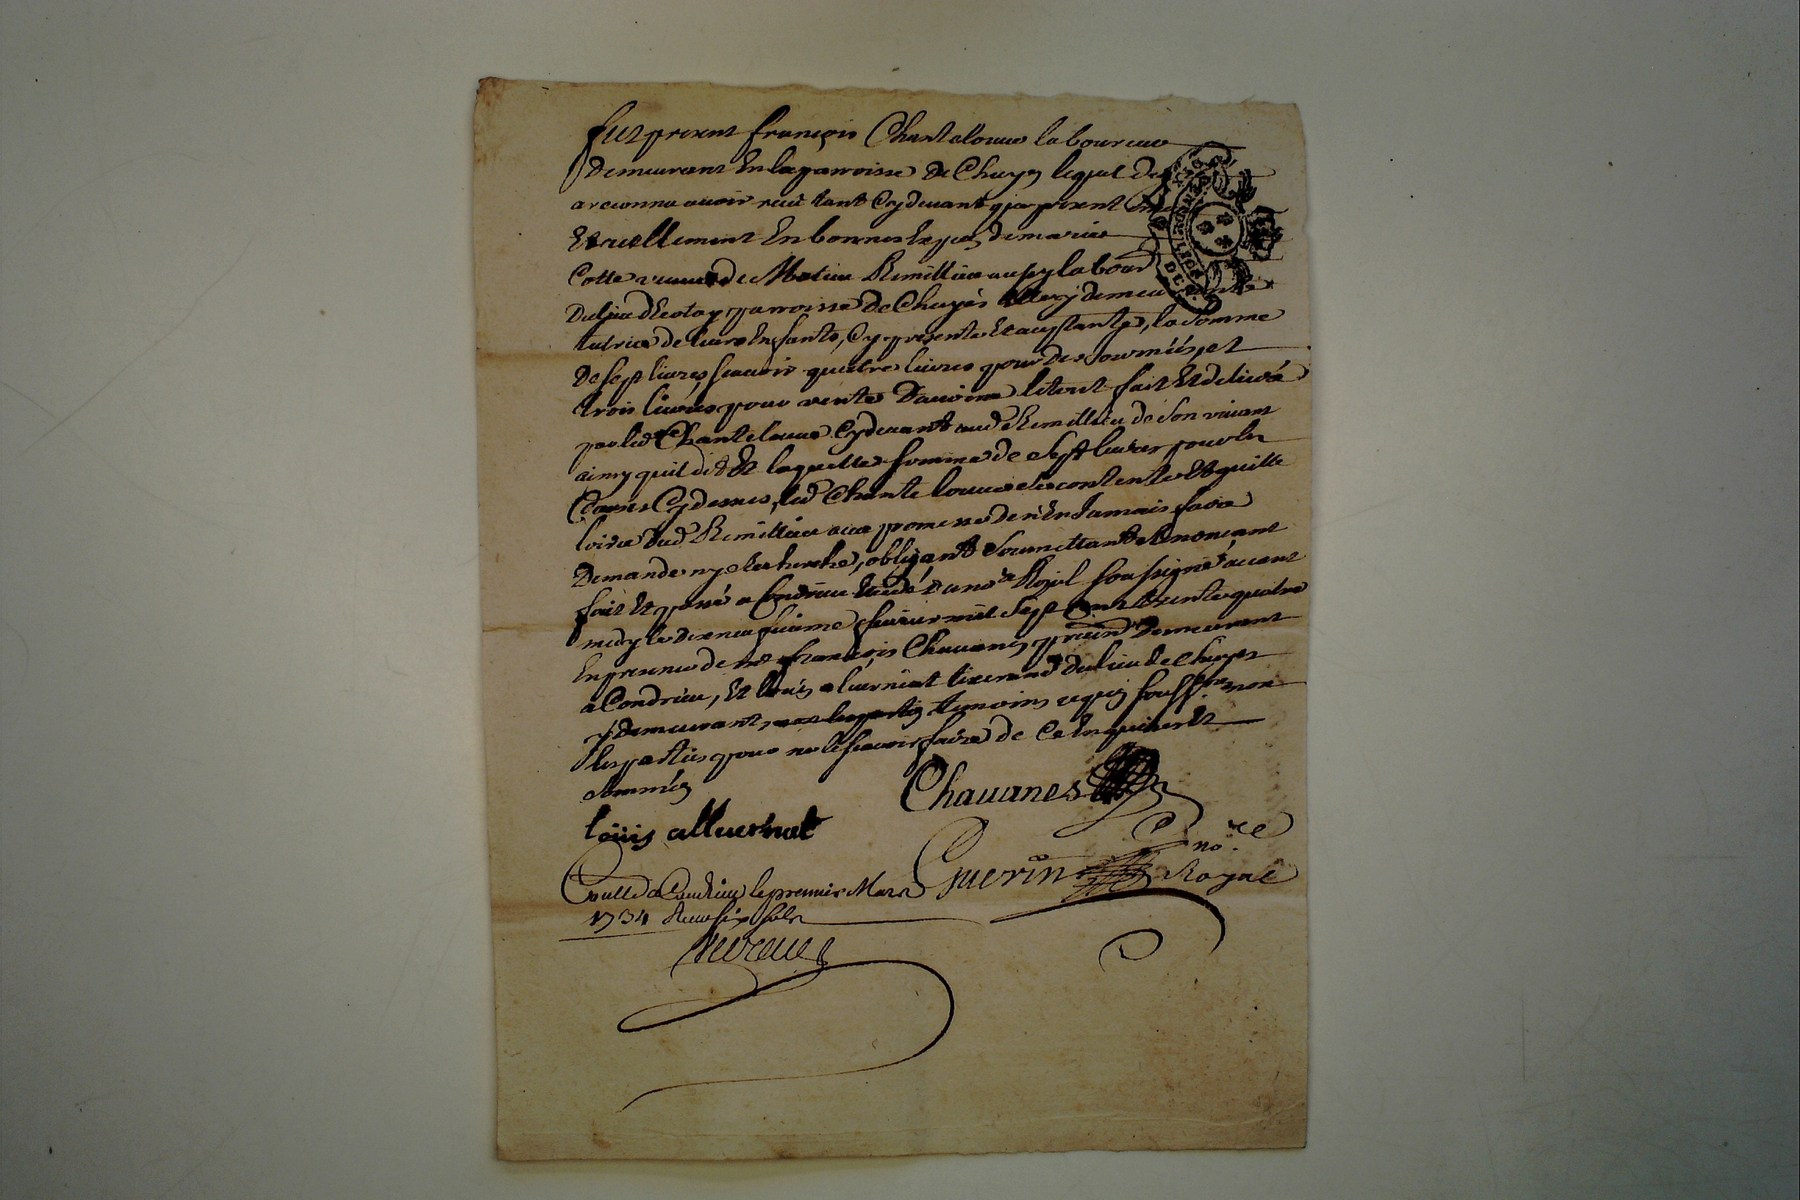 fut present françois Chantelouue laboureur
demeurant En la parroisse de Chuyes lequel de gré
a reconnu auoir receu tant Cy deuant que present
Et reellement En bonnes Especes de marie
Colle veuue de Matieu Remillieu aussy laboureur
du lieu parroisse de Chuyes illec y demeurante
tutrice de leurs Enfants, Cy presente Et acceptante, la Somme
de sept liures scauoir quatre liures pour des Journées, et
trois liures pour vente Dauoine le tout fait Et deliuré
par led Chantelouue Cy deuant aud Remillieu de son viuant
ainsy quil dit Et laquelle somme de sept liures pour les
Causes Cy dessus, led Chantelouue se contente Et quitte
dud Remillieu auec promesse de n'En Jamais faire
Demande ny recherche, obligeant Soumettant Renonçant
fait Et passé a Condrieu Etude du no.re Royal soussigné auant
midy le dixneufuieme feurier mil sept cent trente quatre
En presence de me françois Chauanes praticien Demeurant
a Condrieu, Et louis alluernat tixerand du lieu de Chuyes
y demeurant, temoins requis soussignes non
les parties pour ne le scauoir faire de ce Enquises Et
sommées
Chauanes
louis alluernat
Guerin no.re Royal
Con.lle a Condrieu le premier Mars
1734 Receu six sols